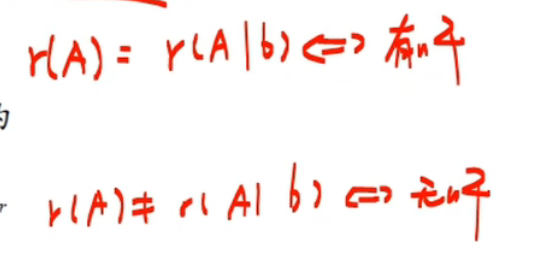 r(A) = r(A|b) <=> 有解
为
r(A) ≠ r(A| b) <=> 无解
r